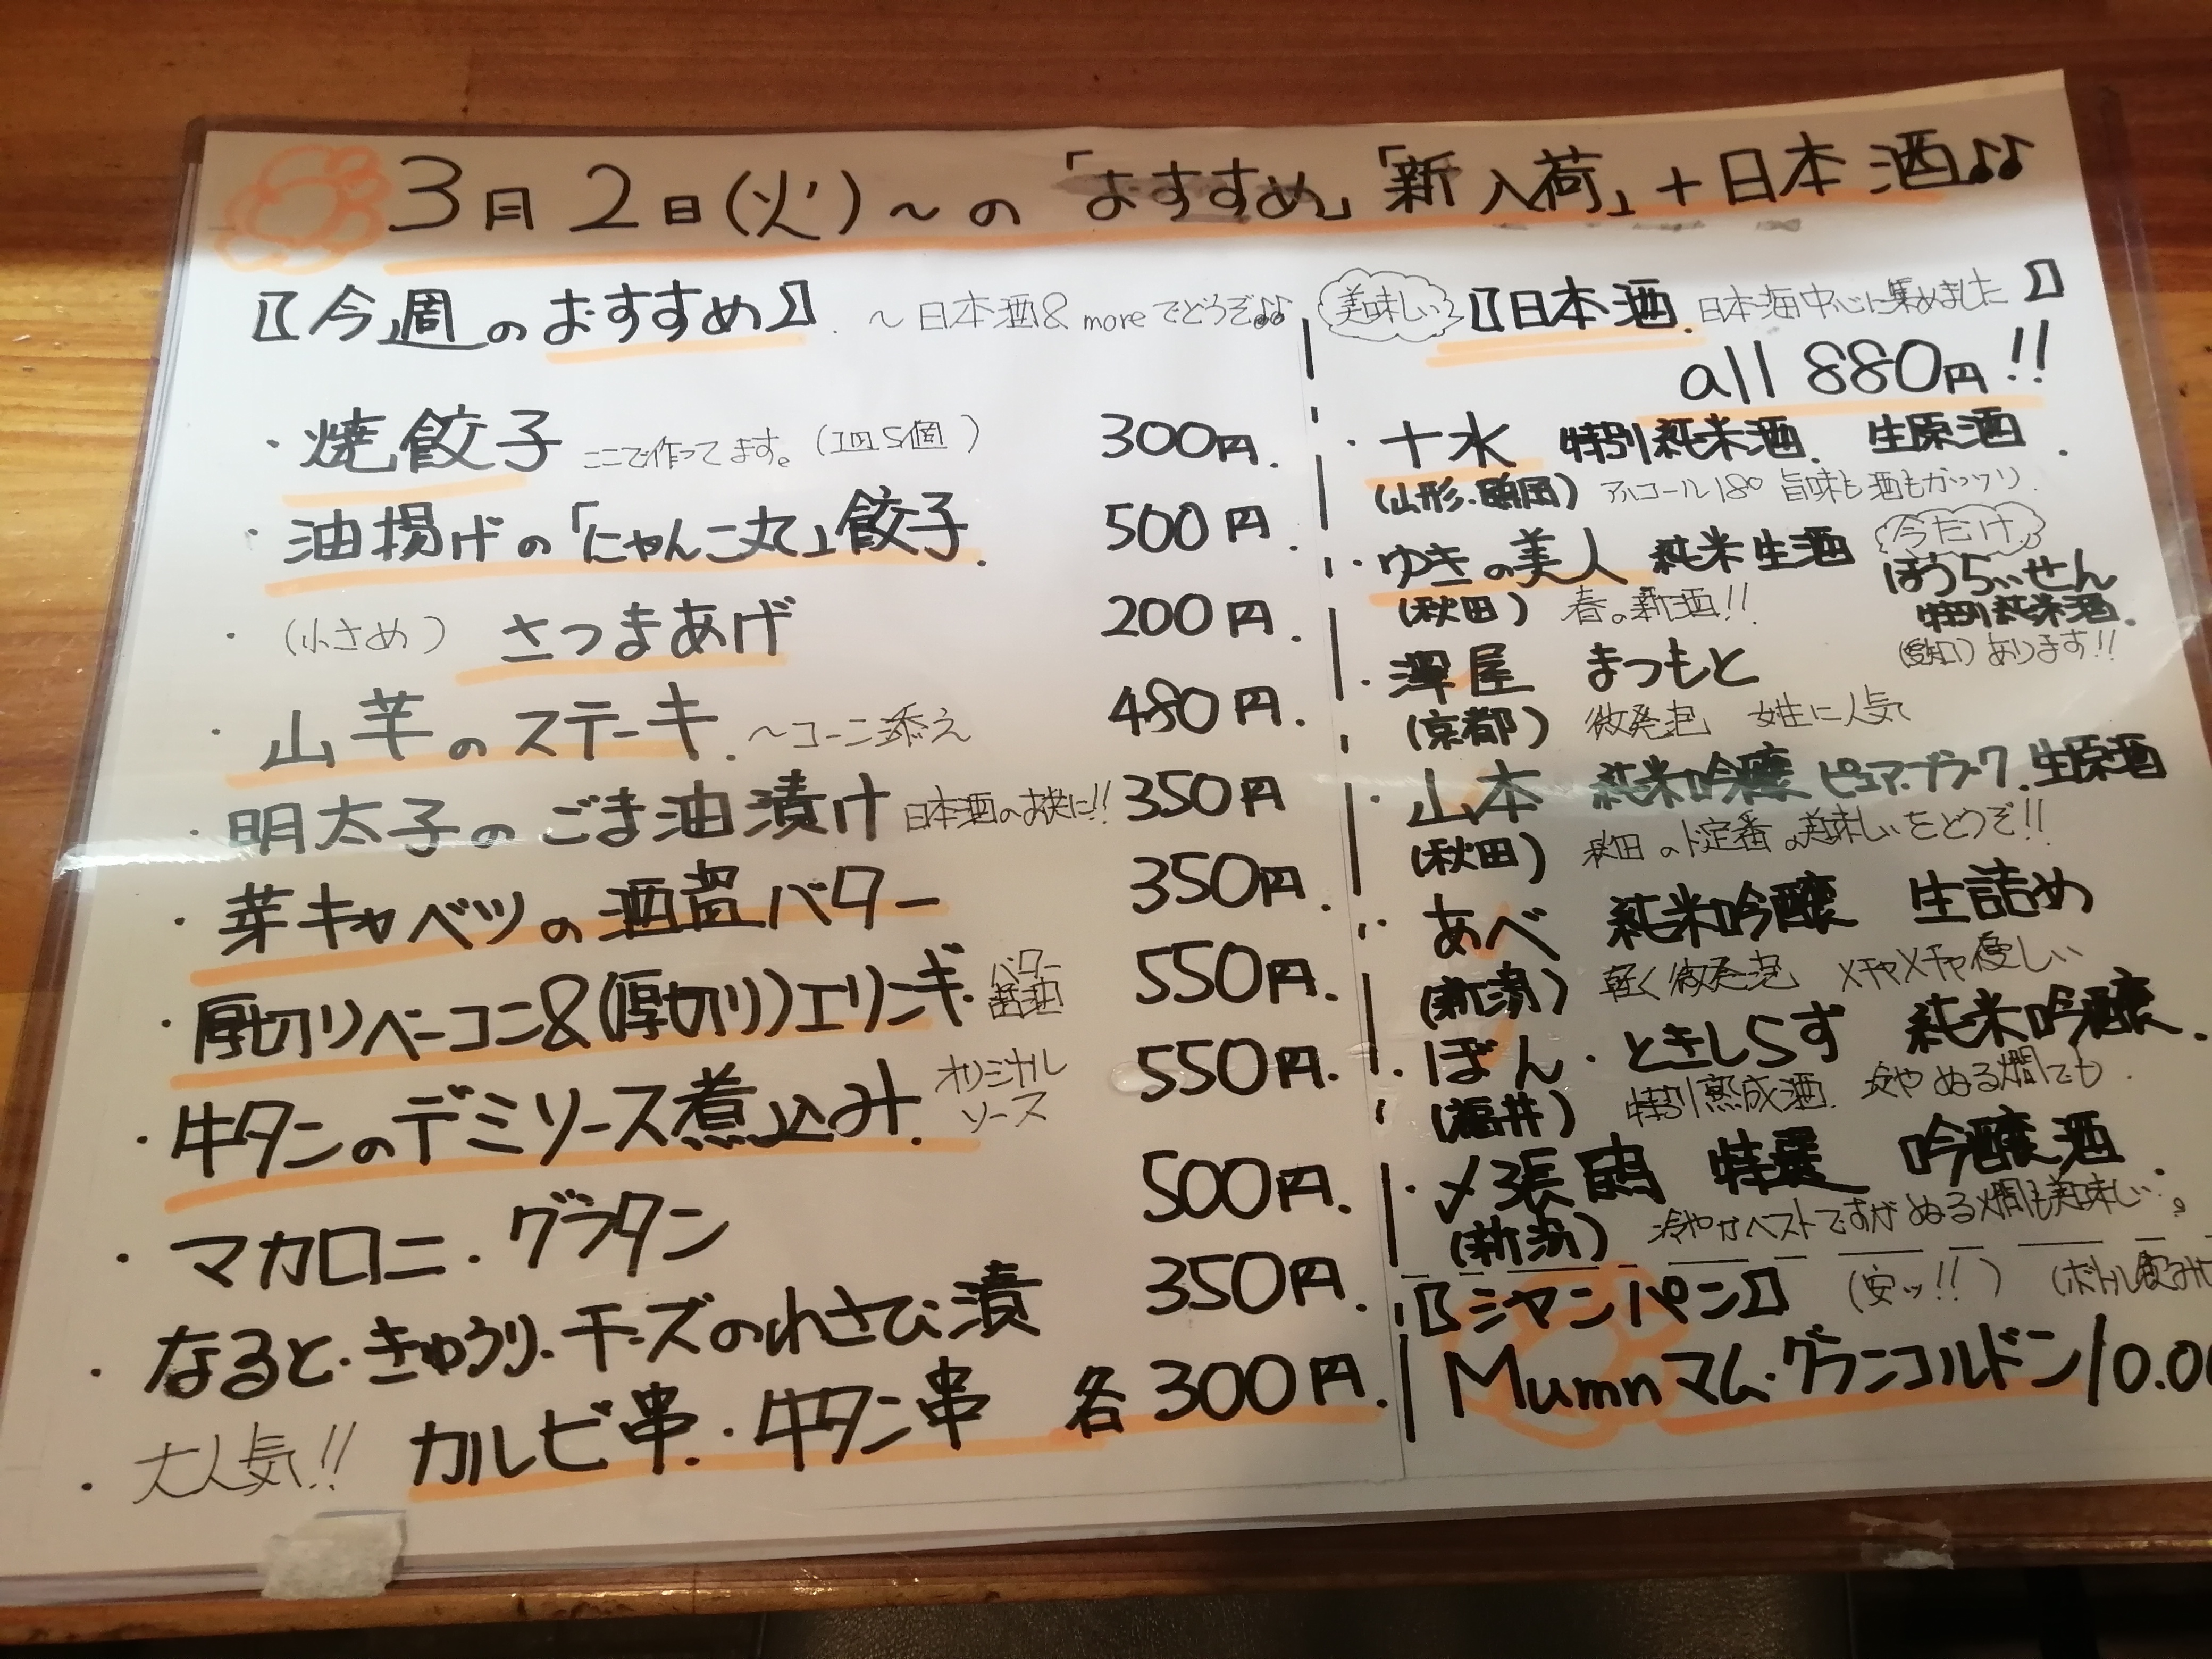 3月2日(火)～の「おすすめ」「新入荷」+日本酒♪♪
【今週のおすすめ】. ～日本酒& moreでどうぞ♪♪
・焼餃子 ここで作ってます。(1皿5個) 300円.
・油揚げの「にゃんこ丸」餃子. 500円.
・(小さめ) さつまあげ 200円.
・山芋のステーキ. ～コーン添え 480円.
・明太子のごま油漬け 日本酒のお供に!! 350円
・芽キャベツの酒盗バター 350円.
・厚切りベーコン&(厚切り)エリンギ. バター醤油 550円.
・牛タンのデミソース煮込み. オリジナルソース 550円.
・マカロニ・グラタン 500円.
・なると・きゅうり・チーズのわさび漬 350円.
・大人気!! カルビ串・牛タン串 各300円.
美味しい 【日本酒. 日本海中心に集めました】
all 880円!!
・十水 特別純米酒. 生原酒.
(山形・鶴岡) アルコール18° 旨味も酒もガッツリ.
・ゆきの美人 純米生酒
(秋田) 春の新酒!!
今だけ
ほうらいせん
特別純米酒.
(愛知) あります!!
・澤屋 まつもと
(京都) 微発泡 女性に人気
・山本 純米吟醸 ピュア・ブラック. 生原酒
(秋田) 秋田のド定番の美味しいをどうぞ!!
・あべ 純米吟醸 生詰め
(新潟) 軽く微発泡 メチャメチャ優しい
・ぼん・ときしらず 純米吟醸.
(福井) 特別熟成酒. 冷や ぬる燗でも.
・〆張鶴 特選 吟醸酒.
(新潟) 冷やがベストですがぬる燗も美味しい。
【シャンパン】 (安ッ!!) (ボトル飲み
Mumn マム・グランコルドン 10.0